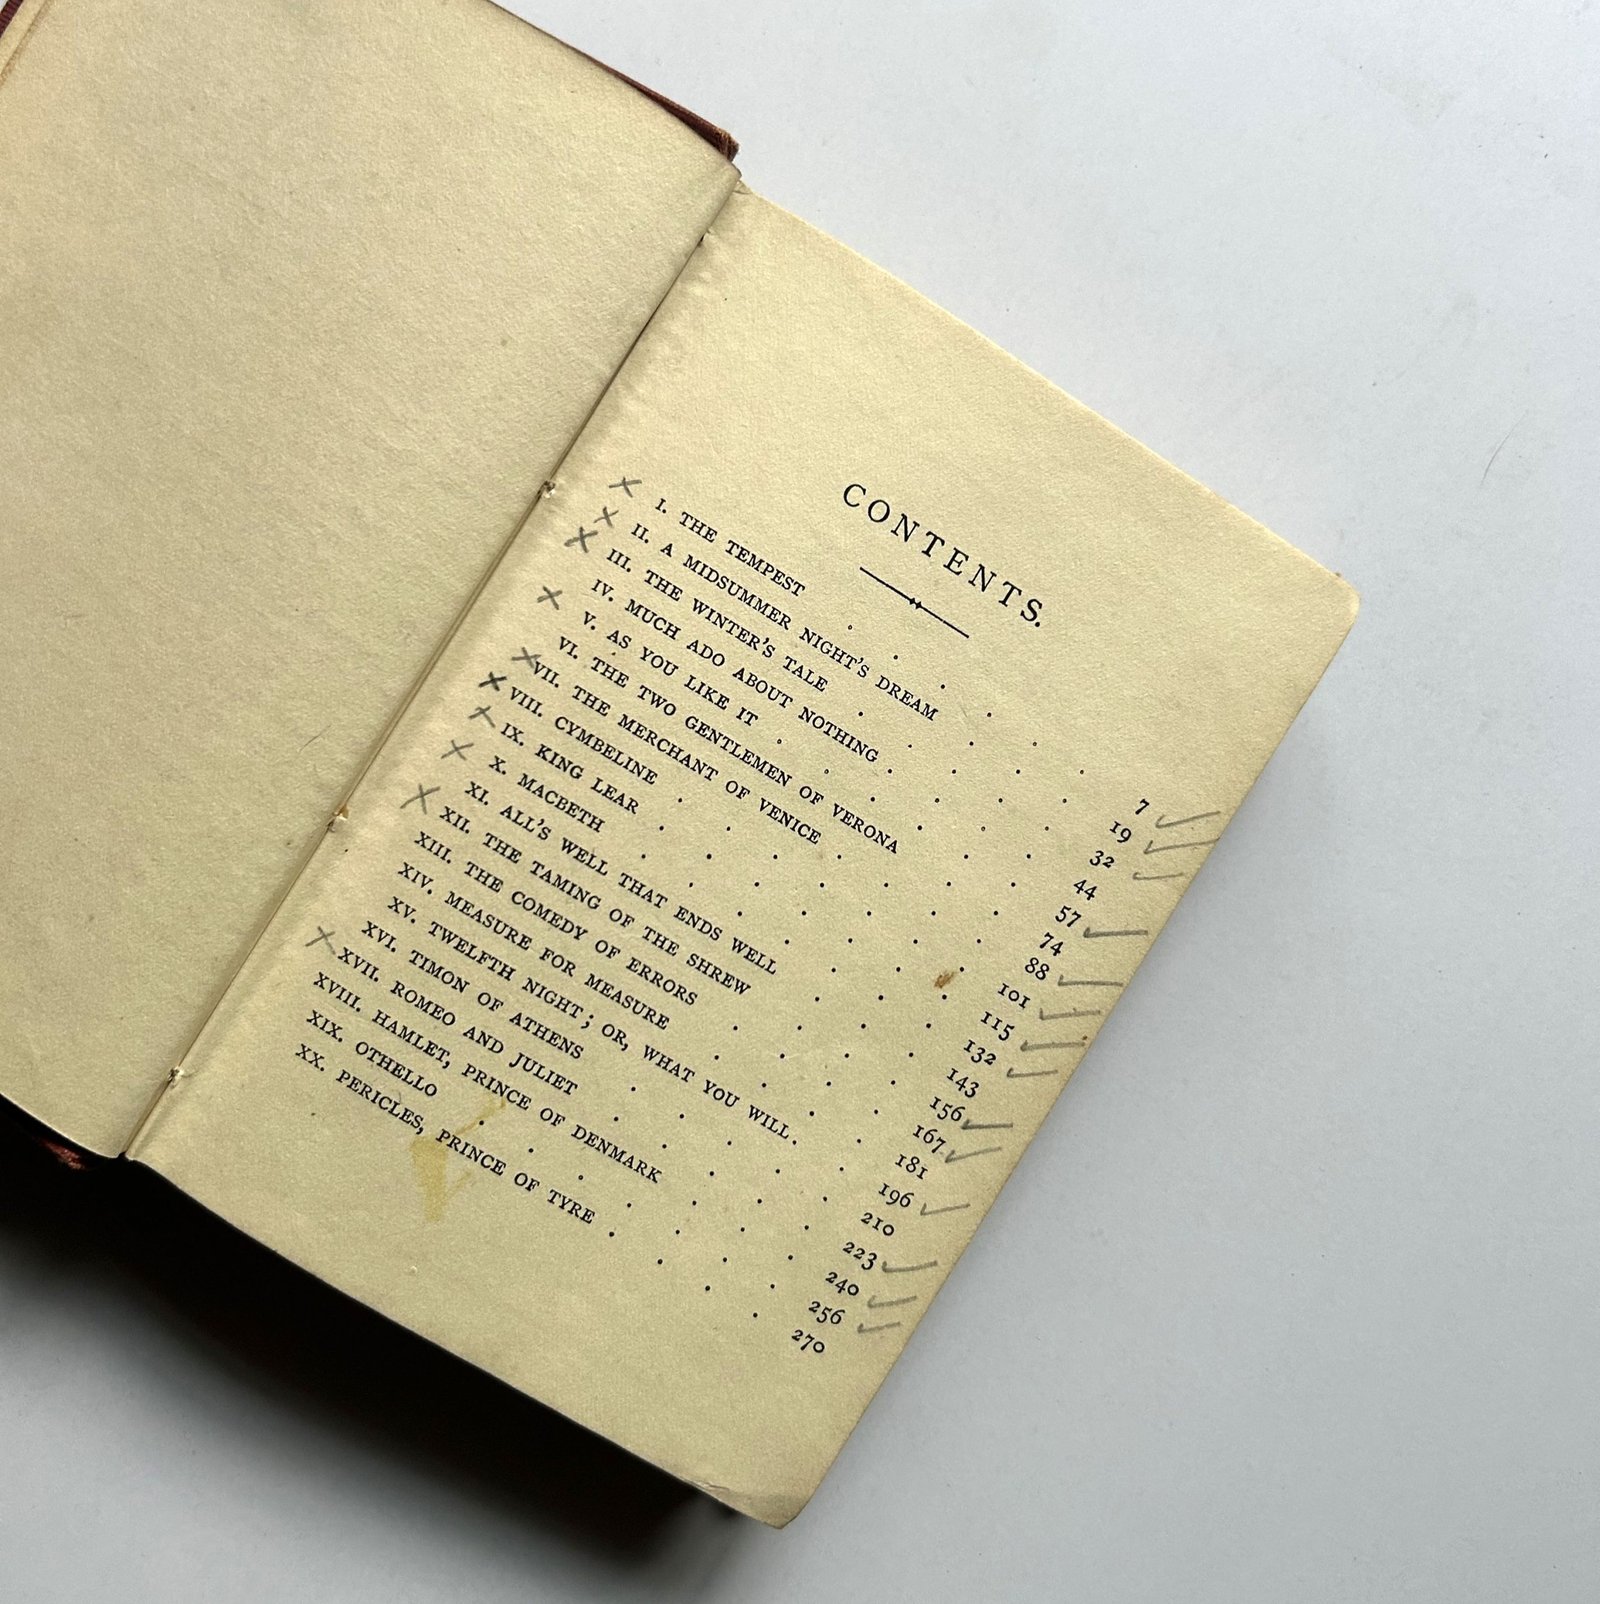 CONTENTS.
I. THE TEMPEST . . . . . . 7
II. A MIDSUMMER NIGHT'S DREAM . . . . 19
III. THE WINTER'S TALE . . . . . 32
IV. MUCH ADO ABOUT NOTHING . . . . . 44
V. AS YOU LIKE IT . . . . . . 57
VI. THE TWO GENTLEMEN OF VERONA . . . . 74
VII. THE MERCHANT OF VENICE . . . . . 88
VIII. CYMBELINE . . . . . . . 101
IX. KING LEAR . . . . . . . 115
X. MACBETH . . . . . . . 132
XI. ALL'S WELL THAT ENDS WELL . . . . 143
XII. THE TAMING OF THE SHREW . . . . 156
XIII. THE COMEDY OF ERRORS . . . . . 167
XIV. MEASURE FOR MEASURE . . . . . 181
XV. TWELFTH NIGHT; OR, WHAT YOU WILL . . . 196
XVI. TIMON OF ATHENS . . . . . 210
XVII. ROMEO AND JULIET . . . . . 223
XVIII. HAMLET, PRINCE OF DENMARK . . . . 240
XIX. OTHELLO . . . . . . . 256
XX. PERICLES, PRINCE OF TYRE . . . . 270